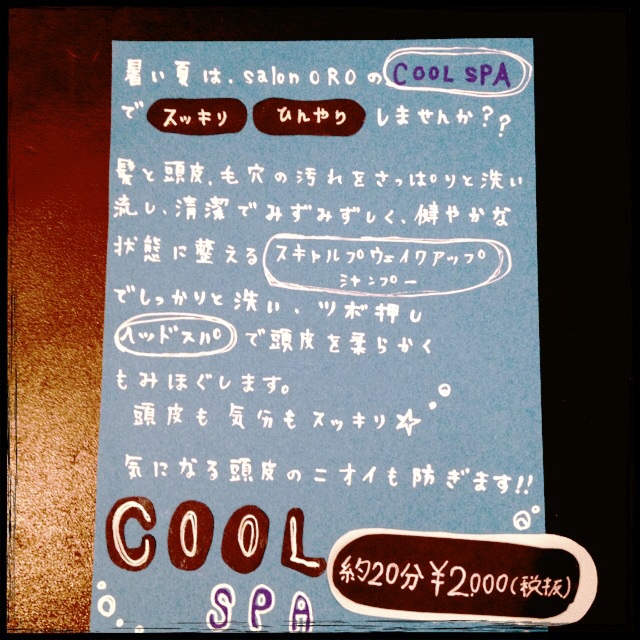 暑い夏は、salon OROのCOOL SPA
でスッキリ ひんやりしませんか??
髪と頭皮、毛穴の汚れをさっぱりと洗い
流し、清潔でみずみずしく、健やかな
状態に整えるスキャルプウェイクアップ
シャンプー
でしっかりと洗い、ツボ押し
ヘッドスパで頭皮を柔らかく
もみほぐします。
頭皮も気分もスッキリ☆
気になる頭皮のニオイも防ぎます!!
COOL
SPA
約20分¥2,000(税抜)